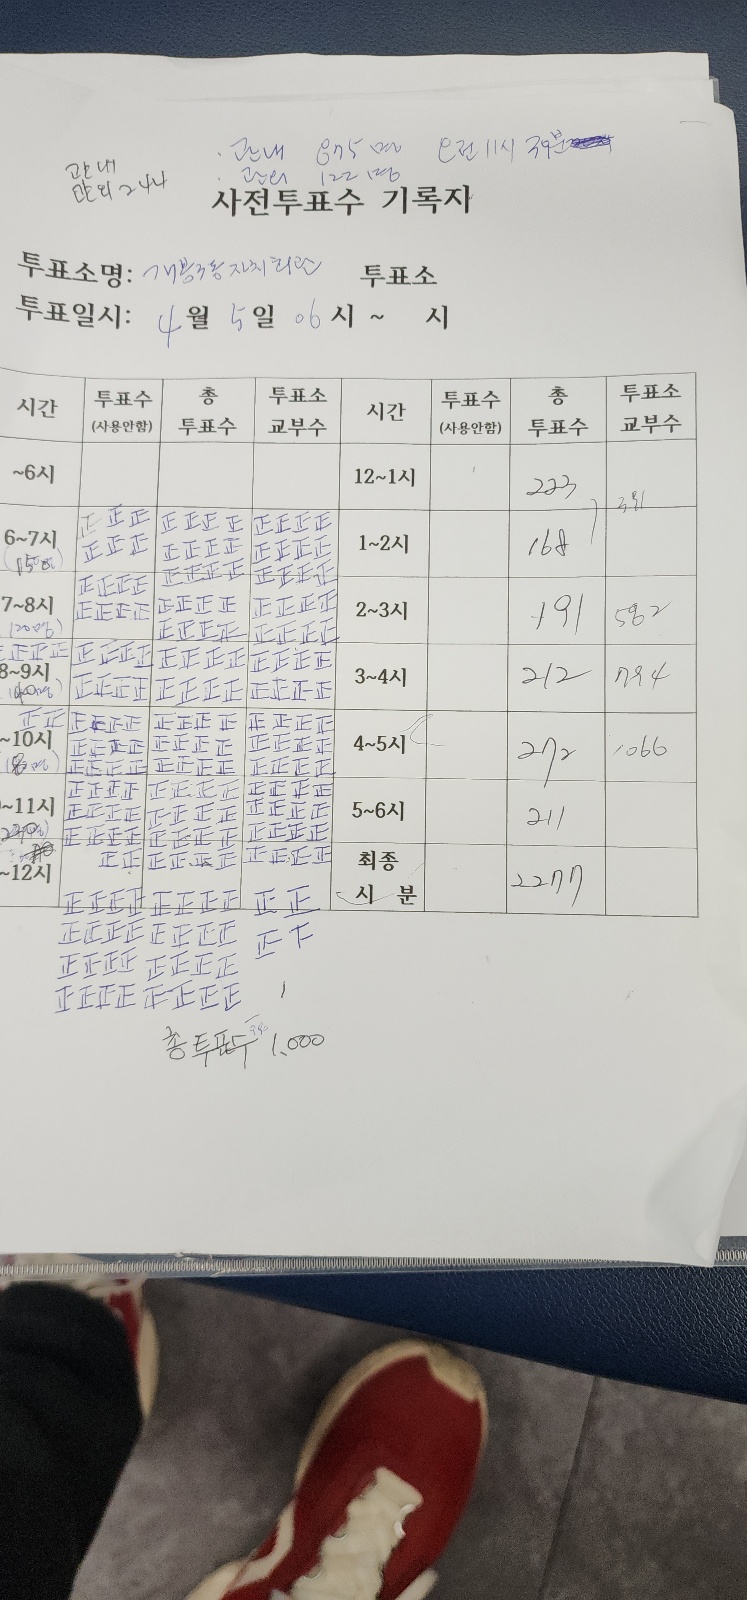 관내 875명 오전 11시 39분
관내
관외 122명
관외 244
사전투표수 기록자
투표소명: 개봉3동자치회관 투표소
투표일시: 4월 5일 06시 ~ 시
시간 투표수 (사용안함) 총 투표수 투표소 교부수 시간 투표수 (사용안함) 총 투표수 투표소 교부수
~6시 12~1시 223
6~7시 正正正 正正正 正正正正 正正正正 正正正正 正正正正 1~2시 168 391
7~8시 正正正正 正正正正 正正正正 正正正正 正正正正 正正正正 2~3시 191 582
8~9시 正正正正 正正正正 正正正正 正正正正 正正正正 正正正正 3~4시 212 794
~10시 正正正正 正正正正 正正正正 正正正正 正正正正 正正正正 正正正正 正正正正 正正正正 4~5시 272 1066
~11시 正正正正 正正正正 正正正正 正正正正 正正正正 正正正正 正正正正 正正正正 正正正正 5~6시 211
~12시 正正 正正正正 正正正正 最종 시 분 2277
正正正正 正正正正 正正
正正正正 正正正正 正
正正正正 正正正正
正正正正 正正正正
총 투표수 1,000